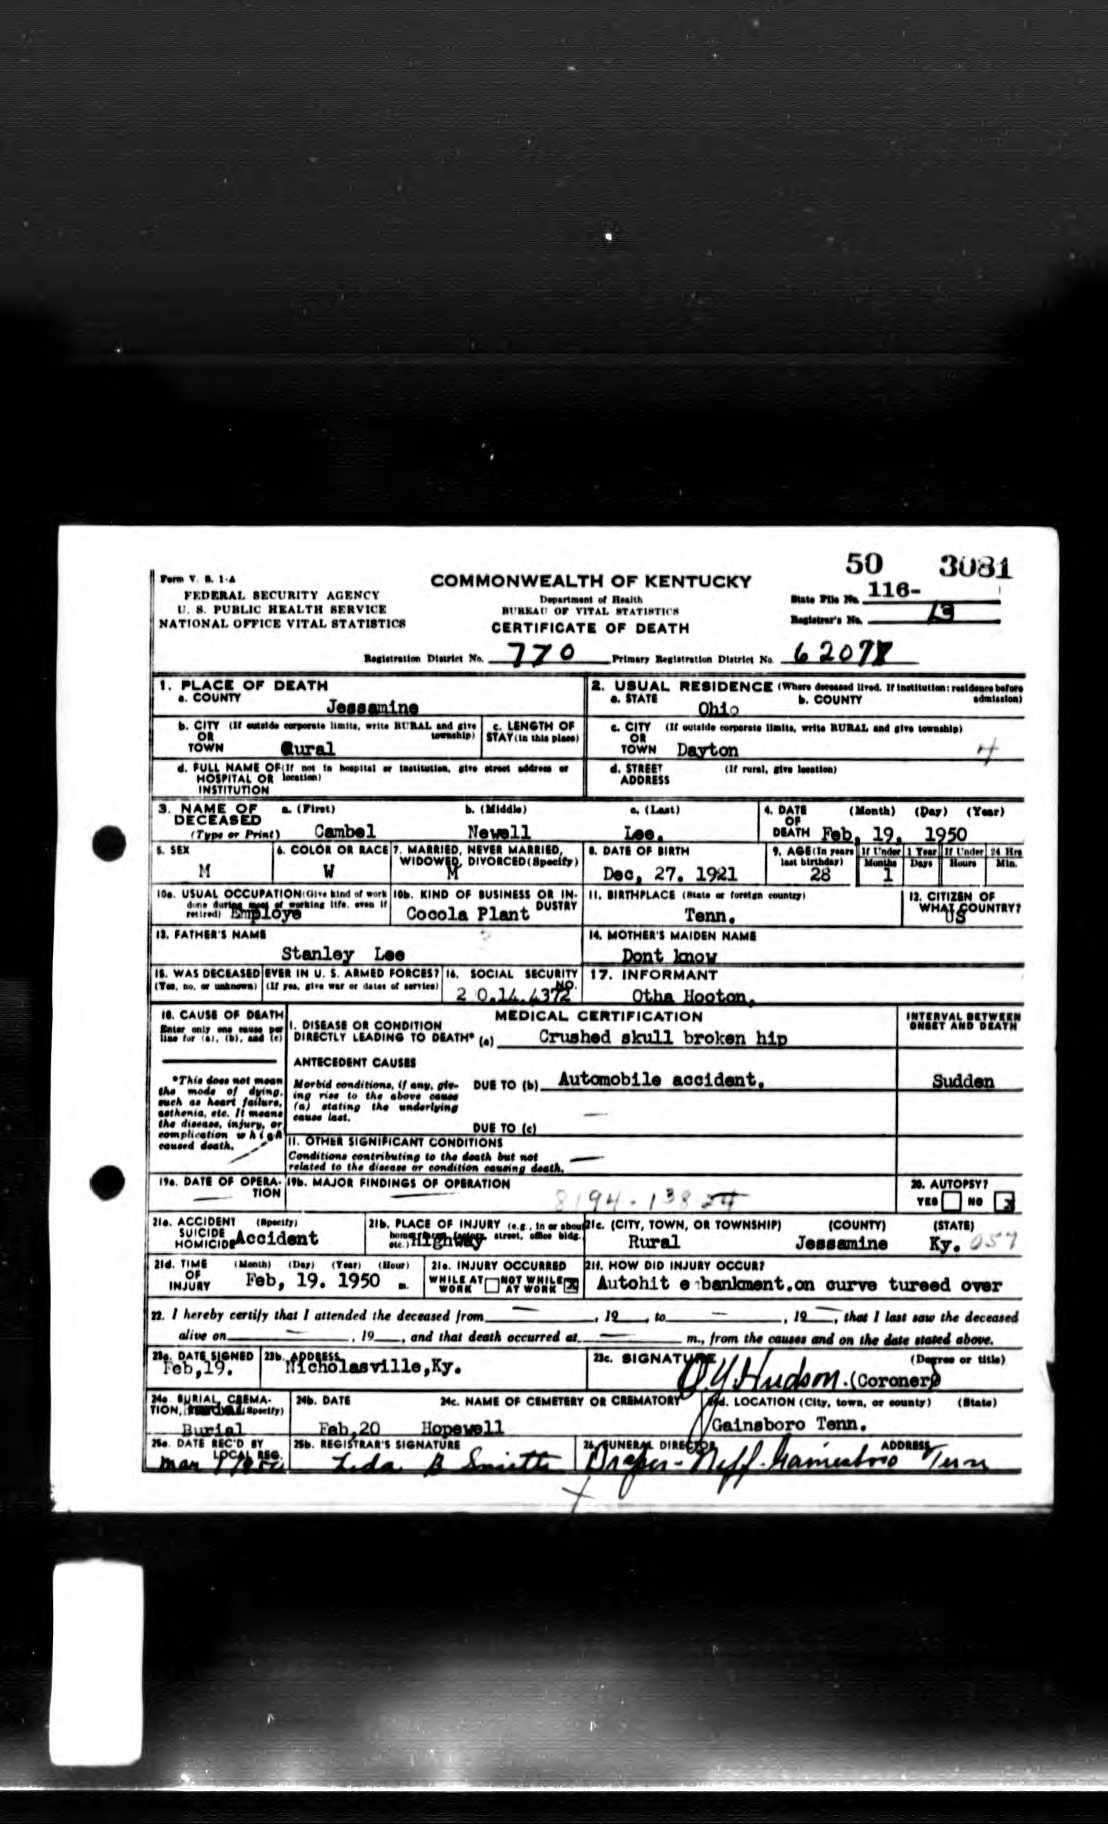 50 3081
Form V. S. 1-A
FEDERAL SECURITY AGENCY
U. S. PUBLIC HEALTH SERVICE
NATIONAL OFFICE VITAL STATISTICS
COMMONWEALTH OF KENTUCKY
Department of Health
BUREAU OF VITAL STATISTICS
CERTIFICATE OF DEATH
State File No. 116-
Registrar's No. 13
Registration District No. 770 Primary Registration District No.
1. PLACE OF DEATH
a. COUNTY Jessamine
2. USUAL RESIDENCE (Where deceased lived. If institution: residence before admission)
a. STATE Ohio b. COUNTY
b. CITY (If outside corporate limits, write RURAL and give township) OR TOWN Rural
c. LENGTH OF STAY (in this place)
c. CITY (If outside corporate limits, write RURAL and give township) OR TOWN Dayton 4
d. FULL NAME OF (If not in hospital or institution, give street address or location) HOSPITAL OR INSTITUTION
d. STREET ADDRESS (If rural, give location)
3. NAME OF DECEASED (Type or Print)
a. (First) b. (Middle) c. (Last)
Cambel Newell Lee.
4. DATE OF DEATH (Month) (Day) (Year)
Feb, 19, 1950
5. SEX M
6. COLOR OR RACE W
7. MARRIED, NEVER MARRIED, WIDOWED, DIVORCED (Specify) M
8. DATE OF BIRTH Dec, 27. 1921
9. AGE (In years last birthday) 28
If Under 1 Year Months 1 Days
If Under 24 Hrs Hours Min.
10a. USUAL OCCUPATION (Give kind of work done during most of working life, even if retired) Employe
10b. KIND OF BUSINESS OR INDUSTRY Cocola Plant
11. BIRTHPLACE (State or foreign country) Tenn.
12. CITIZEN OF WHAT COUNTRY? US
13. FATHER'S NAME Stanley Lee
14. MOTHER'S MAIDEN NAME Dont know
15. WAS DECEASED EVER IN U. S. ARMED FORCES?
(Yes, no, or unknown) (If yes, give war or dates of service)
16. SOCIAL SECURITY NO. 2 0.14.4372
17. INFORMANT Otha Hooton,
18. CAUSE OF DEATH
Enter only one cause per line for (a), (b), and (c)
*This does not mean the mode of dying, such as heart failure, asthenia, etc. It means the disease, injury, or complication which caused death.
MEDICAL CERTIFICATION
INTERVAL BETWEEN ONSET AND DEATH
I. DISEASE OR CONDITION DIRECTLY LEADING TO DEATH* (a) Crushed skull broken hip
ANTECEDENT CAUSES
Morbid conditions, if any, giving rise to the above cause (a) stating the underlying cause last.
DUE TO (b) Automobile accident. Sudden
DUE TO (c)
II. OTHER SIGNIFICANT CONDITIONS
Conditions contributing to the death but not related to the disease or condition causing death.
19a. DATE OF OPERATION
19b. MAJOR FINDINGS OF OPERATION
20. AUTOPSY?
YES NO X
21a. ACCIDENT SUICIDE HOMICIDE (Specify) Accident
21b. PLACE OF INJURY (e.g., in or about home, farm, factory, street, office bldg., etc.) Highway
21c. (CITY, TOWN, OR TOWNSHIP) (COUNTY) (STATE)
Rural Jessamine Ky. 057
21d. TIME OF INJURY (Month) (Day) (Year) (Hour)
Feb, 19. 1950 m.
21e. INJURY OCCURRED
WHILE AT WORK NOT WHILE AT WORK X
21f. HOW DID INJURY OCCUR?
Autohit e bankment.on curve tureed over
22. I hereby certify that I attended the deceased from , 19 , to , 19 , that I last saw the deceased
alive on , 19 , and that death occurred at m., from the causes and on the date stated above.
23a. DATE SIGNED Feb,19.
23b. ADDRESS Nicholasville,Ky.
23c. SIGNATURE (Degree or title)
Hudson (Coroner)
24a. BURIAL, CREMATION, (Specify) Burial
24b. DATE Feb,20
24c. NAME OF CEMETERY OR CREMATORY Hopewell
24d. LOCATION (City, town, or county) (State)
Gainsboro Tenn.
25a. DATE REC'D BY LOCAL REG.
25b. REGISTRAR'S SIGNATURE Leda B Smith
26. FUNERAL DIRECTOR ADDRESS
Draper-Neff-Gainesboro Tenn